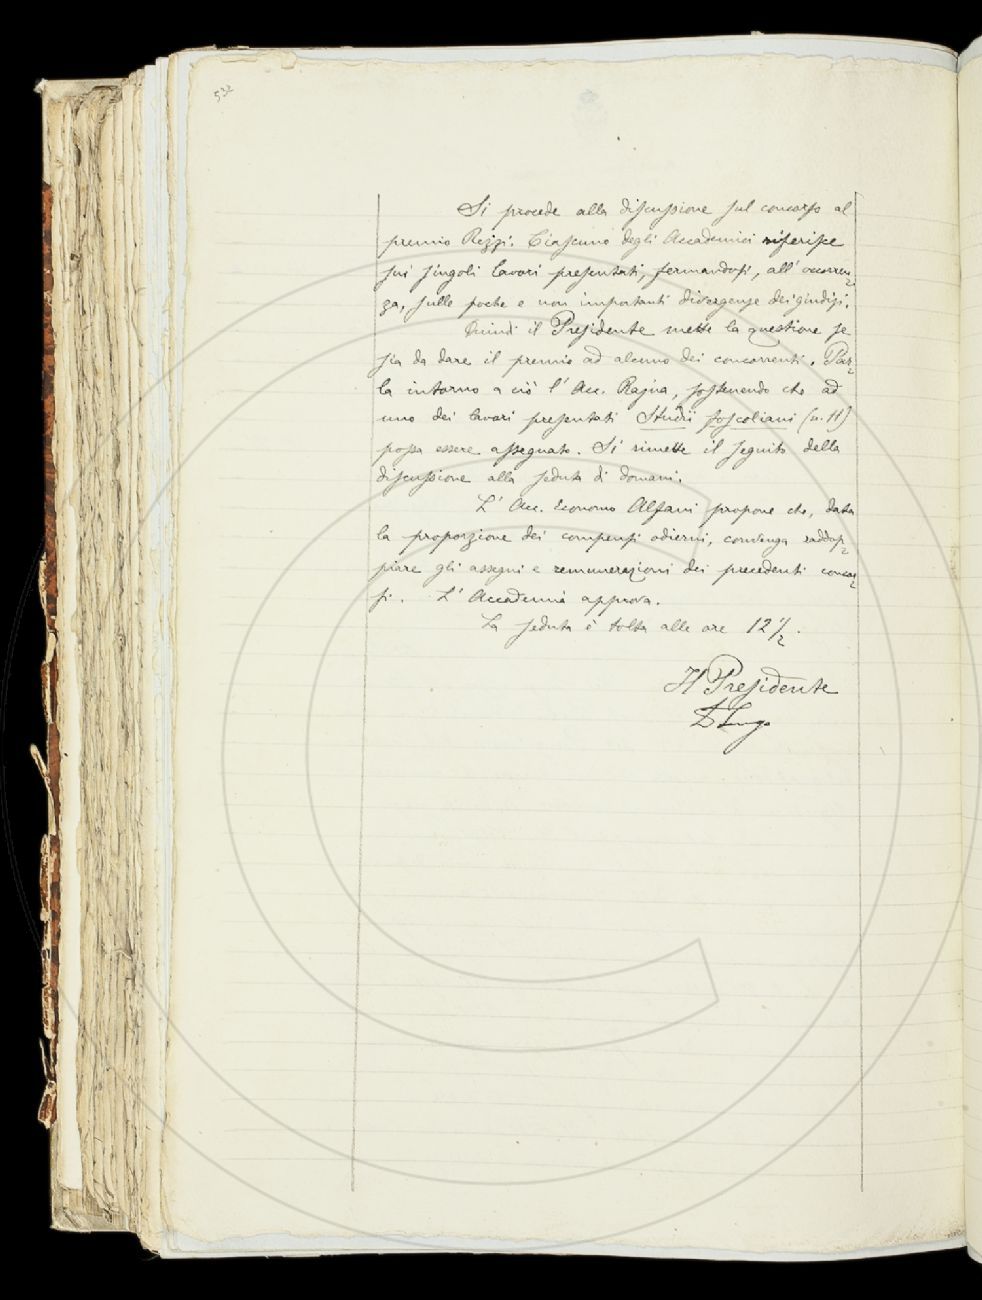 532
Si procede alla discussione sul concorso al
premio Rezzi. Ciascuno degli Accademici riferisce
sui singoli lavori presentati, fermandosi, all'occorren-
za, sulle poche e non importanti divergenze dei giudizi.
Quindi il Presidente mette la questione se
sia da dare il premio ad alcuno dei concorrenti. Par-
la intorno a ciò l'Acc. Rajna, sostenendo che ad
uno dei lavori presentati Studii foscoliani (n. 11)
possa essere assegnato. Si rimette il seguito della
discussione alla seduta di domani.
L'Acc. Economo Alfani propone che, data
la proporzione dei compensi odierni, convenga raddop-
piare gli assegni e remunerazioni dei precedenti concor-
si. L'Accademia approva.
La seduta è tolta alle ore 12 1/2.
Il Presidente